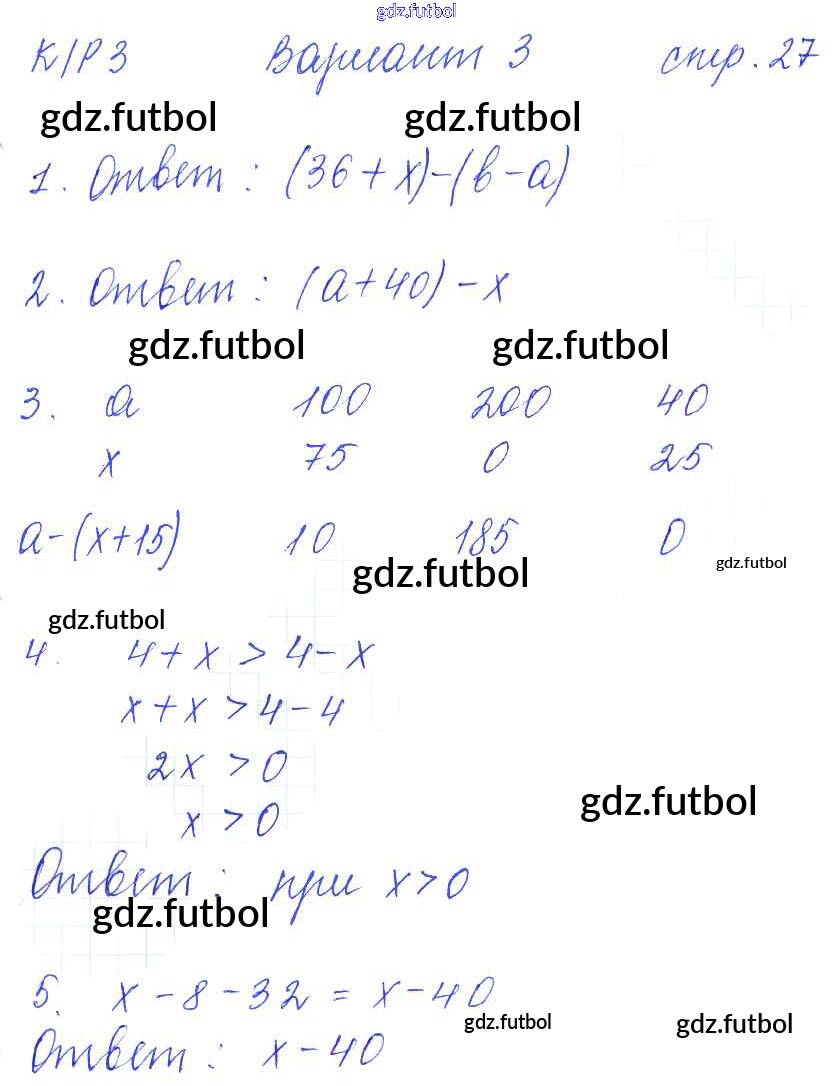 gdz.futbol
К/Р 3 Вариант 3 стр. 27
gdz.futbol gdz.futbol
1. Ответ: (36 + x) - (b - a)
2. Ответ: (a + 40) - x
gdz.futbol gdz.futbol
3. a 100 200 40
x 75 0 25
a - (x + 15) 10 185 0
gdz.futbol gdz.futbol
gdz.futbol
4. 4 + x > 4 - x
x + x > 4 - 4
2x > 0
gdz.futbol
x > 0
Ответ: при x > 0
gdz.futbol
5. x - 8 - 32 = x - 40
gdz.futbol gdz.futbol
Ответ: x - 40